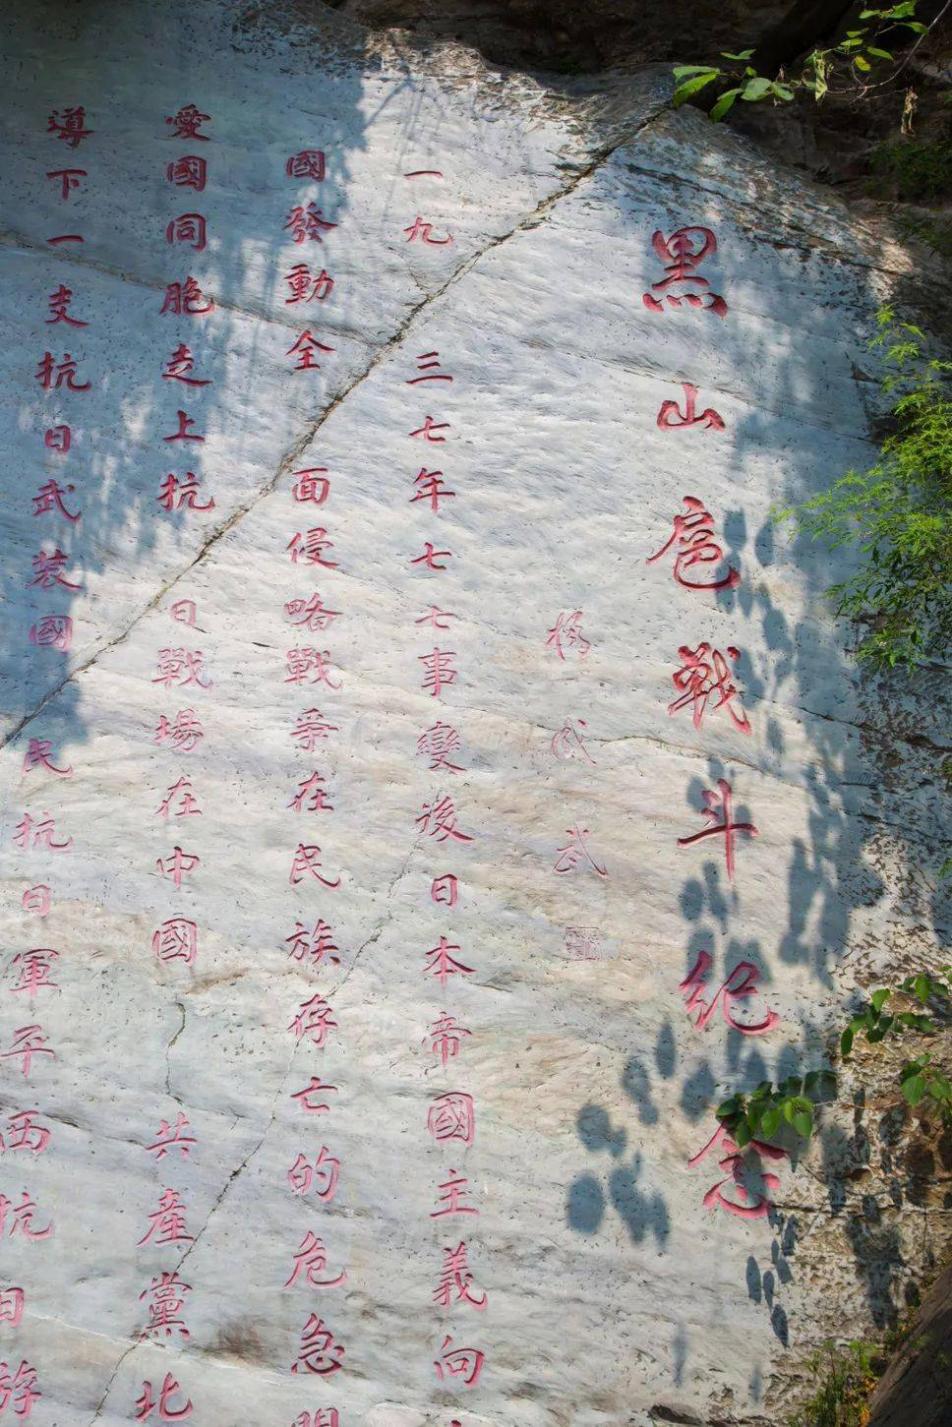 黑山扈戰斗纪念
成武
一九三七年七七事變後日本帝國主義向
國發動全面侵略戰爭在民族存亡的危急關
愛國同胞走上抗日戰場在中國共產黨北
導下一支抗日武裝國民抗日軍平西抗日游